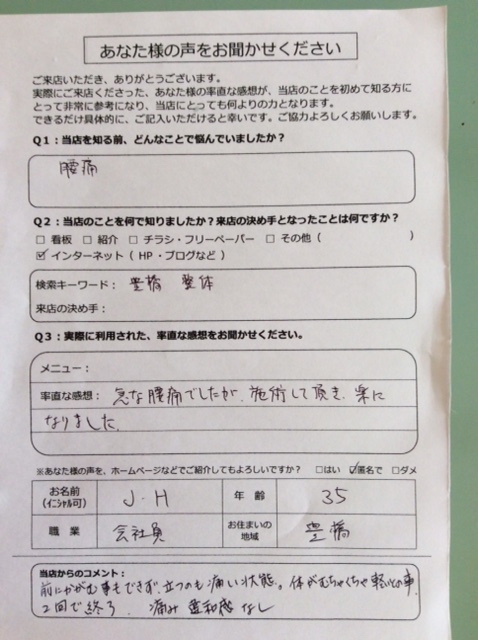 あなた様の声をお聞かせください
ご来店いただき、ありがとうございます。
実際にご来店くださった、あなた様の率直な感想が、当店のことを初めて知る方に
とって非常に参考になり、当店にとっても何よりの力となります。
できるだけ具体的に、ご記入いただけると幸いです。ご協力よろしくお願いします。
Q1:当店を知る前、どんなことで悩んでいましたか?
腰痛
Q2:当店のことを何で知りましたか?来店の決め手となったことは何ですか?
□ 看板 □ 紹介 □ チラシ・フリーペーパー □ その他( )
☑ インターネット( HP・ブログなど )
検索キーワード: 豊橋 整体
来店の決め手:
Q3:実際に利用された、率直な感想をお聞かせください。
メニュー:
率直な感想: 急な腰痛でしたが、施術して頂き、楽に
なりました。
※あなた様の声を、ホームページなどでご紹介してもよろしいですか? □はい ☑匿名で □ダメ
お名前 (イニシャル可) J・H 年 齢 35
職 業 会社員 お住まいの地域 豊橋
当店からのコメント:
前にかがむ事もできず、立つのも痛い状態。体がむちゃくちゃ軽いとの事。
2回で終了 痛み 違和感なし